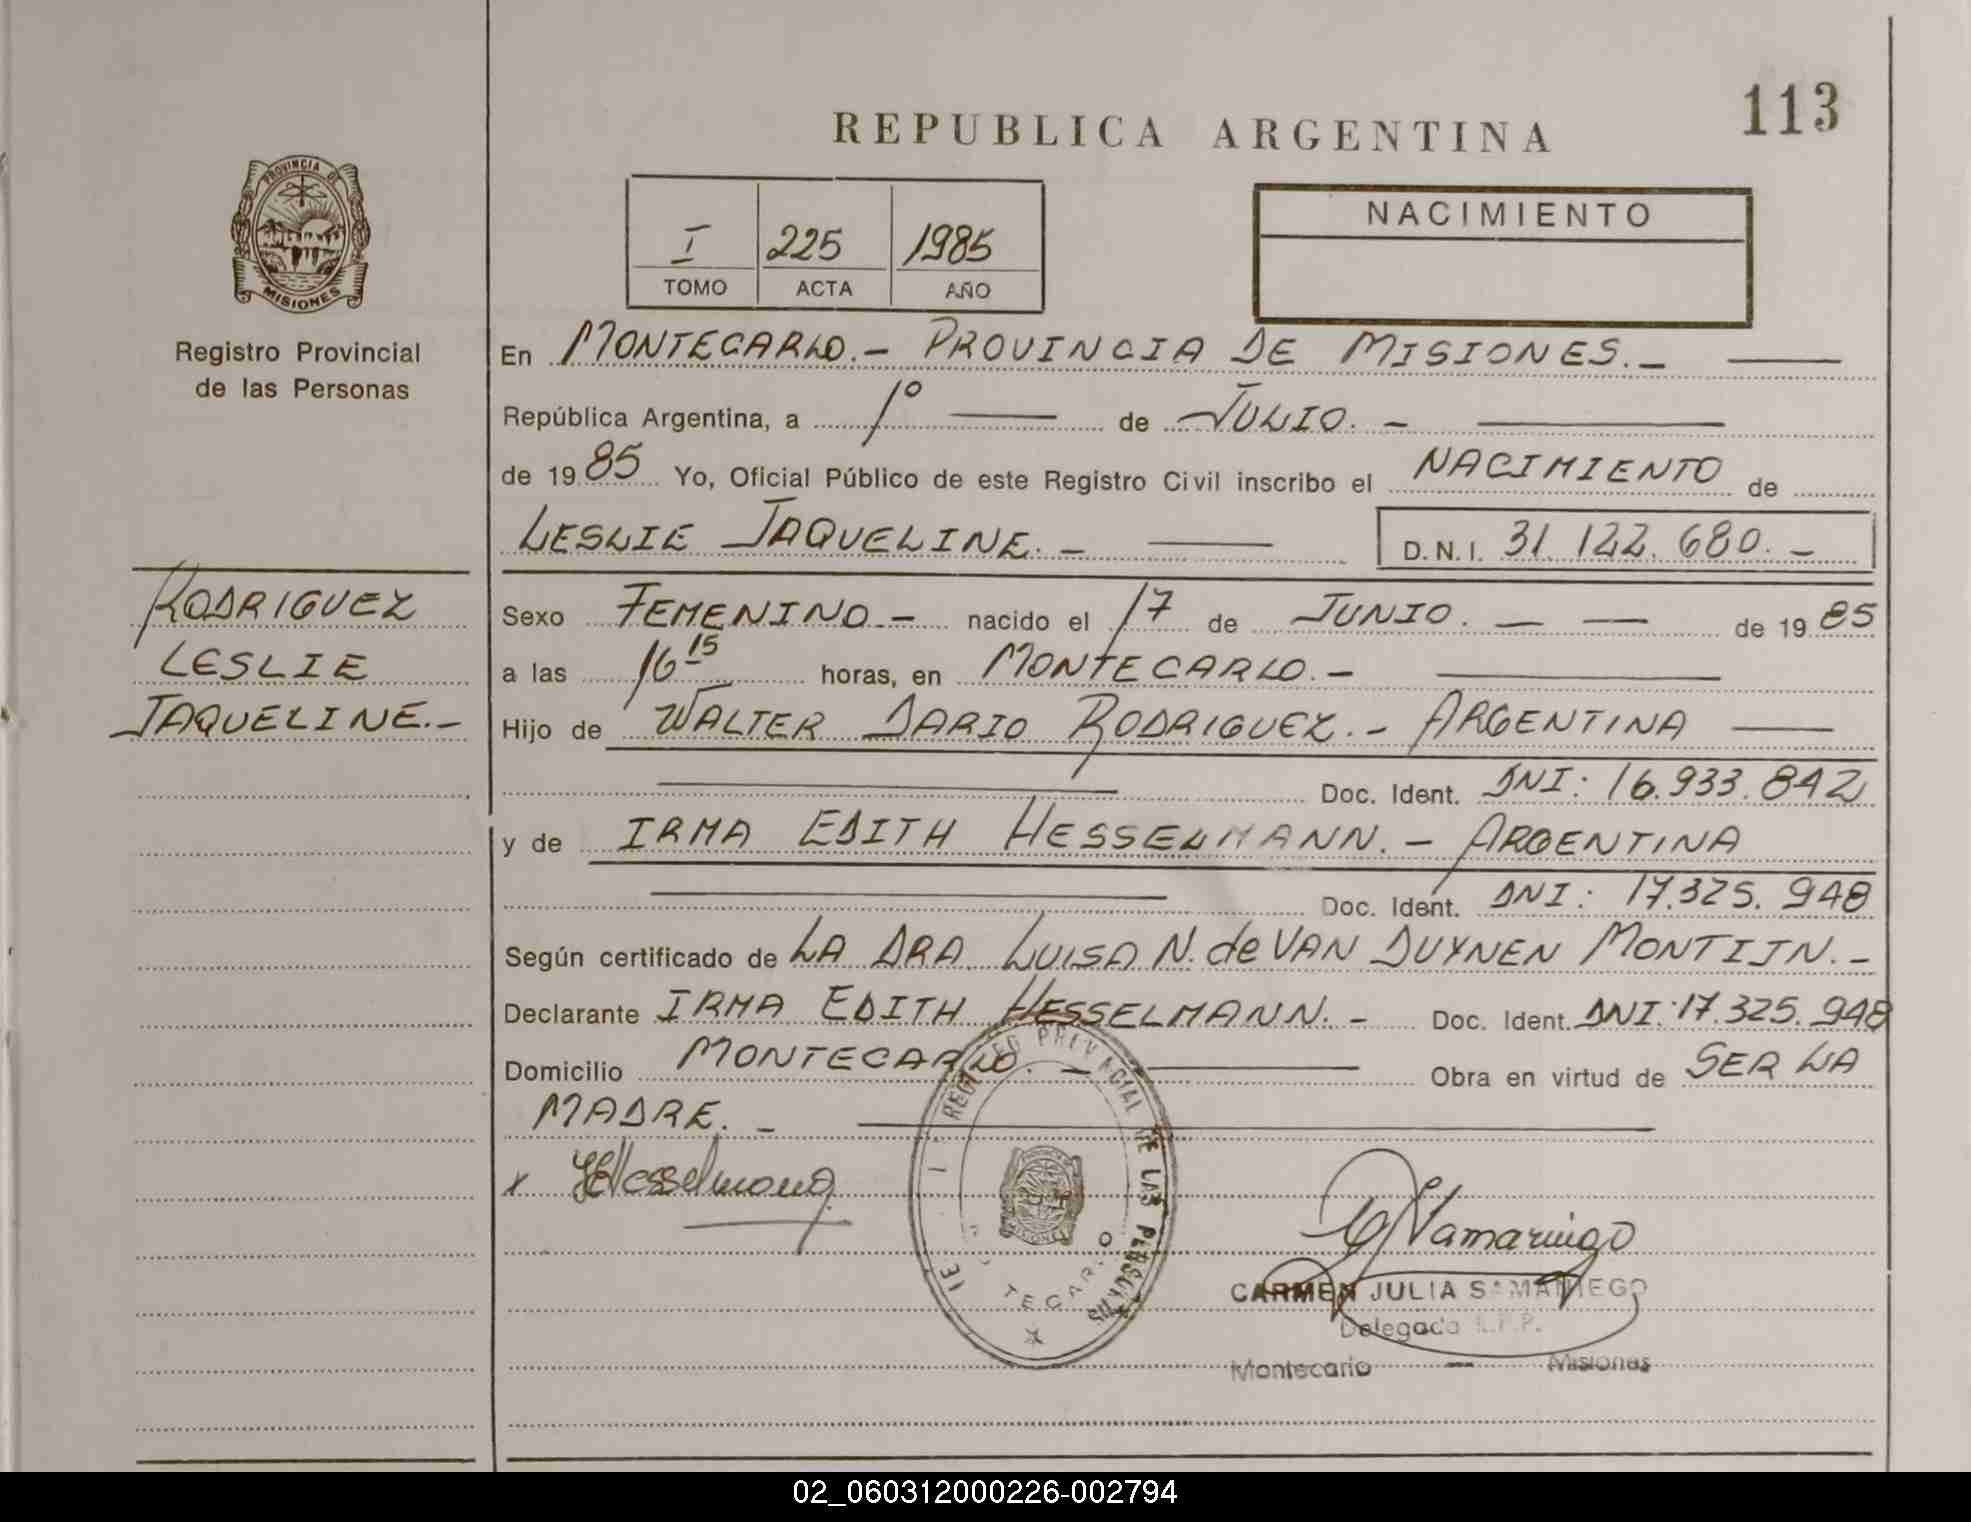 113
REPUBLICA ARGENTINA
PROVINCIA DE
MISIONES
Registro Provincial
de las Personas
I 225 1985
TOMO ACTA AÑO
NACIMIENTO
En MONTECARLO.- PROVINCIA DE MISIONES.-
República Argentina, a 1º de JULIO.-
de 1985 Yo, Oficial Público de este Registro Civil inscribo el NACIMIENTO de
LESLIE JAQUELINE.- D.N.I. 31.122.680.-
RODRIGUEZ
LESLIE
JAQUELINE.-
Sexo FEMENINO.- nacido el 17 de JUNIO. - - de 1985
a las 16 15 horas, en MONTECARLO.-
Hijo de WALTER DARIO RODRIGUEZ.- ARGENTINA
Doc. Ident. DNI: 16.933.842
y de IRMA EDITH HESSELMANN.- ARGENTINA
Doc. Ident. DNI: 17.325.948
Según certificado de LA DRA LUISA N. de VAN DUYNEN MONTIJN.-
Declarante IRMA EDITH HESSELMANN.- Doc. Ident. DNI: 17.325.948
Domicilio MONTECARLO.- Obra en virtud de SER LA
MADRE.-
x
CARMEN JULIA SAMANIEGO
Delegada R.P.P.
Montecarlo - Misiones
02_060312000226-002794